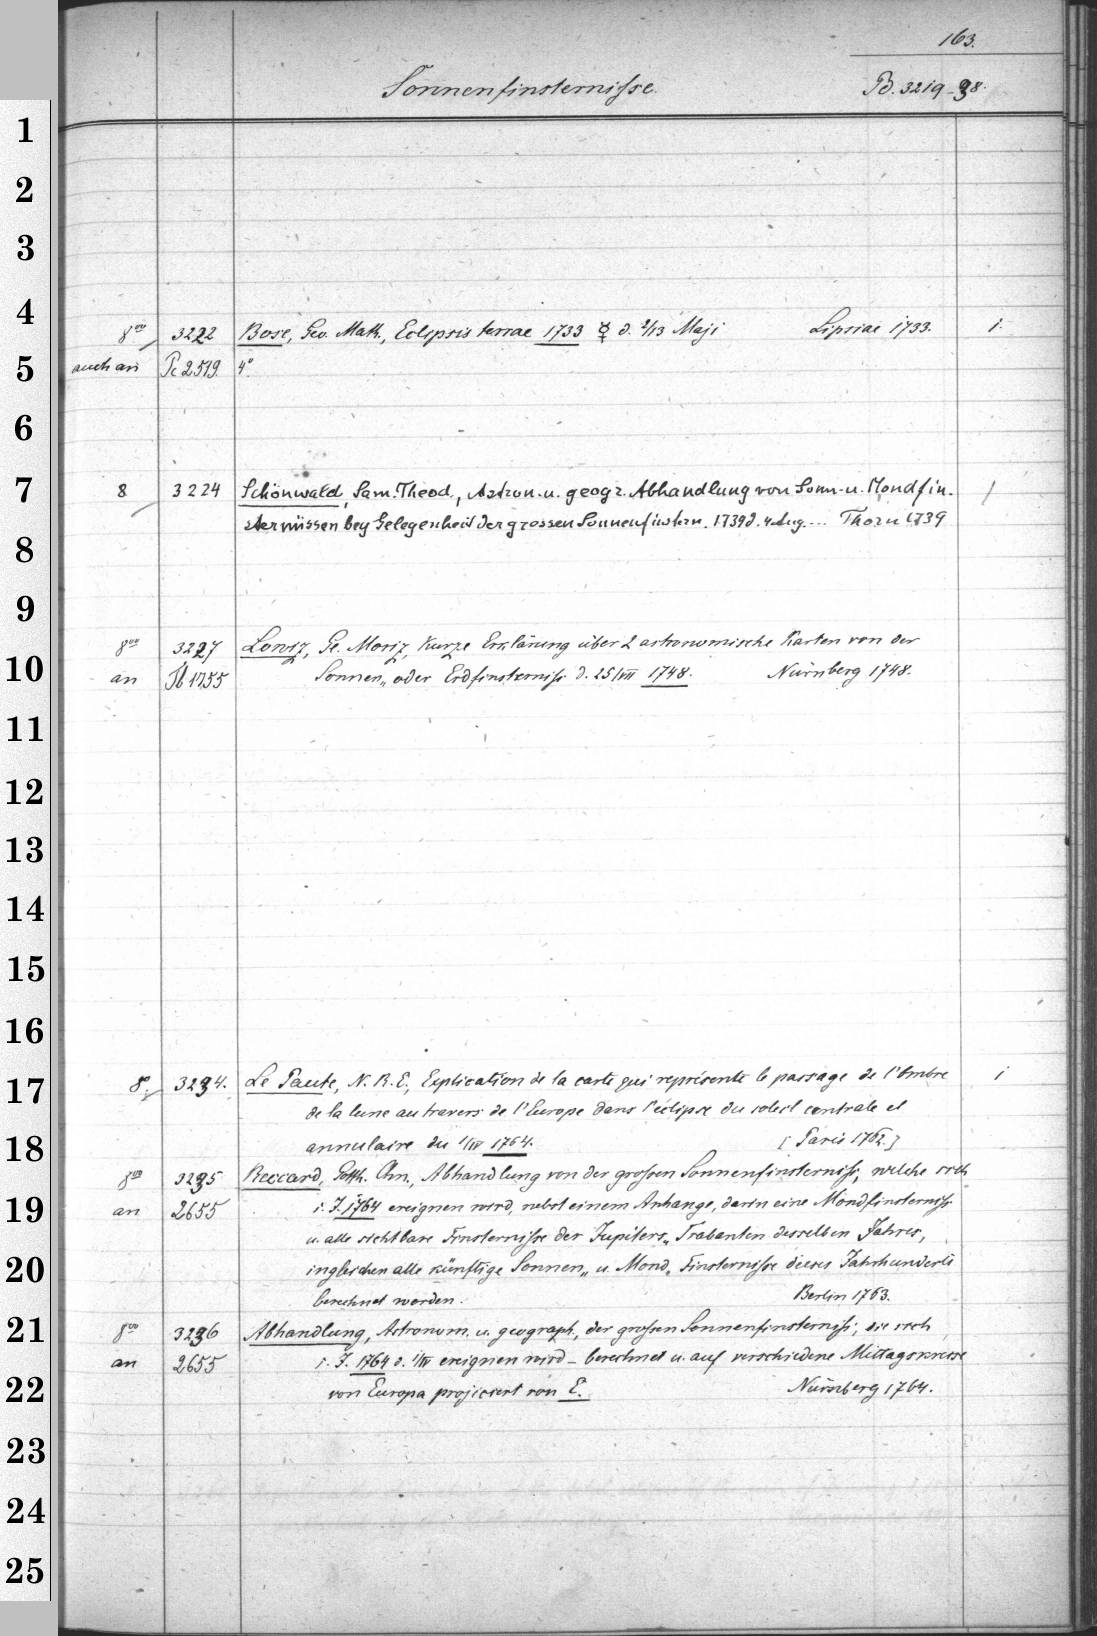 163.
Sonnenfinsternisse. B. 3219-38.
1
2
3
4
8vo 3222 Bose, Geo. Math., Eclipsis terrae 1733 ☿ d. 2/13 Maji Lipsiae 1733. 1.
5
auch an Pc 2519. 4°.
6
7
8 3224 Schönwald, Sam. Theod., Astron. u. geogr. Abhandlung von Sonn- u. Mondfin- 1
sternüssen bey Gelegenheit der grossen Sonnenfinstern. 1739 d. 4 Aug.... Thorn 1739
8
9
8vo 3227 Lowiz, Ge. Moriz, Kurze Erklärung über 2 astronomische Karten von der
10
an Pb 1755 Sonnen- oder Erdfinsterniss d. 25/VII 1748. Nürnberg 1748.
11
12
13
14
15
16
17
8. 3234. Le Paute, N. R. E., Explication de la carte qui représente le passage de l'Ombre 1
de la lune au travers de l'Europe dans l'éclipse du soleil centrale et
18
annulaire du 1/IV 1764. [Paris 1762.]
8vo 3235 Beccard, Gotth. Chn., Abhandlung von der grossen Sonnenfinsterniss, welche sich
19
an 2655 i. J. 1764 ereignen wird, nebst einem Anhange, darin eine Mondfinsterniss
u. alle sichtbare Finsternisse der Jupiters-Trabanten desselben Jahres,
20
ingleichen alle künftige Sonnen- u. Mond-Finsternisse dieses Jahrhunderts
berechnet worden. Berlin 1763.
21
8vo 3236 Abhandlung, Astronom. u. geograph., der grossen Sonnenfinsterniss, die sich
an 2655 i. J. 1764 d. 1/IV ereignen wird - berechnet u. auf verschiedene Mittagskreise
22
von Europa projiciert von E. Nürnberg 1764.
23
24
25